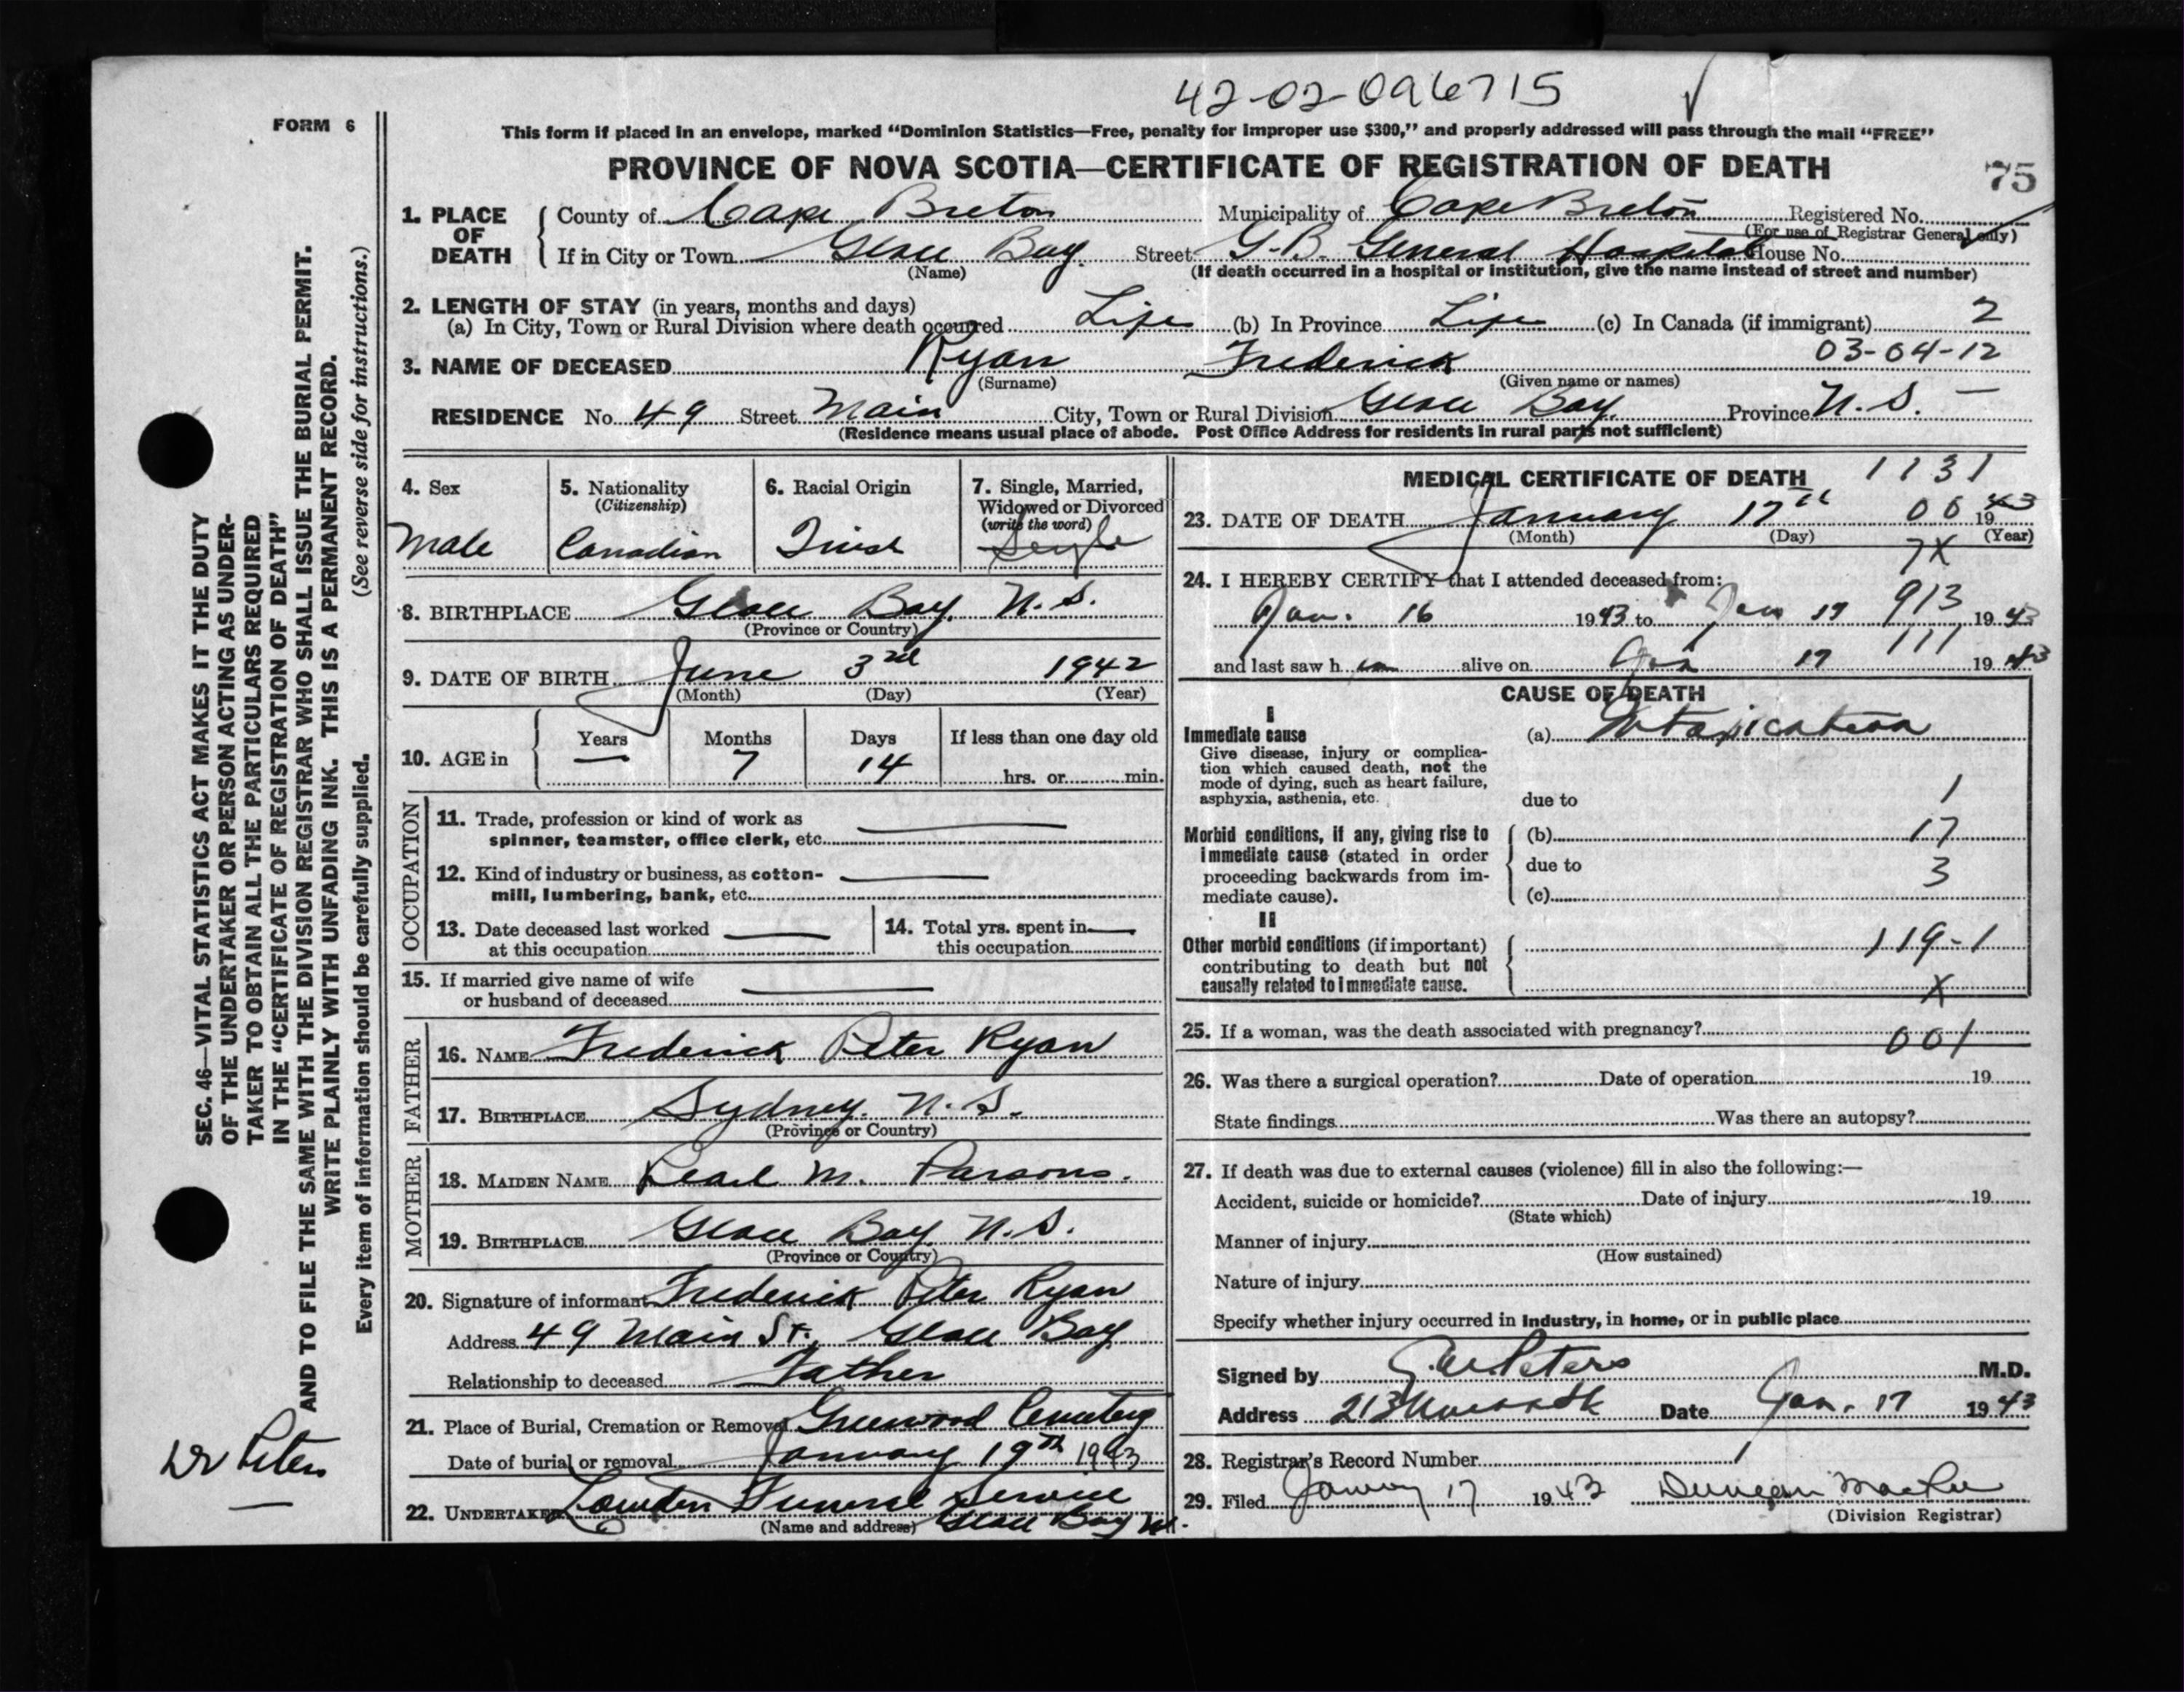 42-02-096715 ✓
FORM 6
This form if placed in an envelope, marked “Dominion Statistics—Free, penalty for improper use $300,” and properly addressed will pass through the mail “FREE”
PROVINCE OF NOVA SCOTIA—CERTIFICATE OF REGISTRATION OF DEATH
75
1. PLACE OF DEATH
County of Cape Breton Municipality of Cape Breton Registered No.
(For use of Registrar General only)
If in City or Town Glace Bay Street G.B. General Hospital House No.
(Name) (If death occurred in a hospital or institution, give the name instead of street and number)
2. LENGTH OF STAY (in years, months and days)
(a) In City, Town or Rural Division where death occurred Life (b) In Province Life (c) In Canada (if immigrant) 2
03-04-12
3. NAME OF DECEASED Ryan Frederick
(Surname) (Given name or names)
RESIDENCE No. 49 Street Main City, Town or Rural Division Glace Bay Province N.S. —
(Residence means usual place of abode. Post Office Address for residents in rural parts not sufficient)
4. Sex
Male
5. Nationality
(Citizenship)
Canadian
6. Racial Origin
Irish
7. Single, Married,
Widowed or Divorced
(write the word)
Single
8. BIRTHPLACE Glace Bay, N.S.
(Province or Country)
9. DATE OF BIRTH June 3rd 1942
(Month) (Day) (Year)
10. AGE in
Years Months Days If less than one day old
— 7 14 hrs. or min.
OCCUPATION
11. Trade, profession or kind of work as
spinner, teamster, office clerk, etc.
12. Kind of industry or business, as cotton-
mill, lumbering, bank, etc.
13. Date deceased last worked
at this occupation
14. Total yrs. spent in
this occupation
15. If married give name of wife
or husband of deceased
FATHER
16. NAME Frederick Peter Ryan
17. BIRTHPLACE Sydney. N.S.
(Province or Country)
MOTHER
18. MAIDEN NAME Pearl M. Parsons.
19. BIRTHPLACE Glace Bay N.S.
(Province or Country)
20. Signature of informant Frederick Peter Ryan
Address 49 Main St., Glace Bay
Relationship to deceased Father
21. Place of Burial, Cremation or Removal Greenwood Cemetery
Date of burial or removal January 19th 1943
22. UNDERTAKER Lowden Funeral Service
(Name and address) Glace Bay
MEDICAL CERTIFICATE OF DEATH 1131
23. DATE OF DEATH January 17th 06 1943
(Month) (Day) (Year)
7X
24. I HEREBY CERTIFY that I attended deceased from:
Jan. 16 1943 to Jan 17 913 1943
and last saw h im alive on Jan 17 111 1943
CAUSE OF DEATH
I
Immediate cause
Give disease, injury or complica-
tion which caused death, not the
mode of dying, such as heart failure,
asphyxia, asthenia, etc.
(a) Intoxication
due to 1
Morbid conditions, if any, giving rise to
immediate cause (stated in order
proceeding backwards from im-
mediate cause).
(b) 17
due to 3
(c)
II
Other morbid conditions (if important)
contributing to death but not
causally related to immediate cause.
119-1
X
25. If a woman, was the death associated with pregnancy? 001
26. Was there a surgical operation? Date of operation 19
State findings Was there an autopsy?
27. If death was due to external causes (violence) fill in also the following:—
Accident, suicide or homicide? Date of injury 19
(State which)
Manner of injury
(How sustained)
Nature of injury
Specify whether injury occurred in industry, in home, or in public place
Signed by Peters M.D.
Address Date Jan. 17 1943
28. Registrar's Record Number 1
29. Filed January 17 1943 Duncan
(Division Registrar)
SEC. 46—VITAL STATISTICS ACT MAKES IT THE DUTY
OF THE UNDERTAKER OR PERSON ACTING AS UNDER-
TAKER TO OBTAIN ALL THE PARTICULARS REQUIRED
IN THE “CERTIFICATE OF REGISTRATION OF DEATH”
AND TO FILE THE SAME WITH THE DIVISION REGISTRAR WHO SHALL ISSUE THE BURIAL PERMIT.
WRITE PLAINLY WITH UNFADING INK. THIS IS A PERMANENT RECORD.
Every item of information should be carefully supplied. (See reverse side for instructions.)
Dr Peters